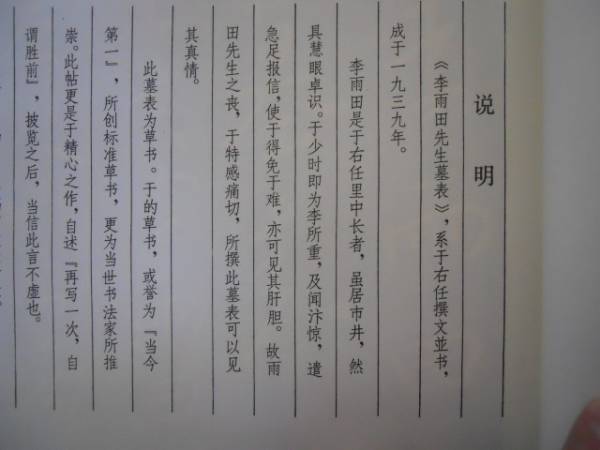 说明
《李雨田先生墓表》，系于右任撰文並书，
成于一九三九年。
李雨田是于右任里中长者，虽居市井，然
具慧眼卓识。于少时即为李所重，及闻汴惊，遣
急足报信，使于得免于难，亦可见其肝胆。故雨
田先生之丧，于特感痛切，所撰此墓表可以见
其真情。
此墓表为草书。于的草书，或誉为『当今
第一』，所创标准草书，更为当世书法家所推
崇。此帖更是于精心之作，自述『再写一次，自
谓胜前』，披览之后，当信此言不虚也。